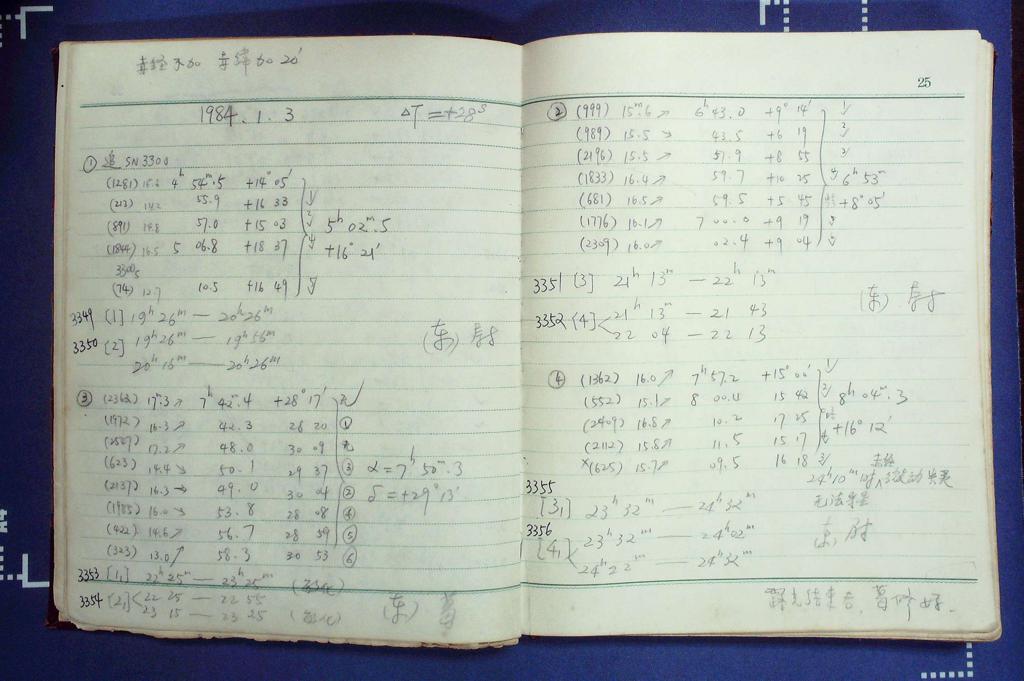 赤经不加 赤纬加 20′
1984. 1. 3 ΔT = +28ˢ
① 追 SN3300
(1281) 15.2 4ʰ 54ᵐ.5 +14° 05′
(213) 14.2 55.9 +16 33
(891) 14.8 57.0 +15 03
(1844) 16.5 5 06.8 +18 37
3300
(74) 12.7 10.5 +16 49
5ʰ 02ᵐ.5
+16° 21′
3349 [1] 19ʰ26ᵐ — 20ʰ26ᵐ
3350 [2] 19ʰ26ᵐ — 19ʰ56ᵐ
20ʰ16ᵐ — 20ʰ26ᵐ
(东)
③ (2362) 17ᵐ.3↗ 7ʰ 42ᵐ.4 +28° 17′
(1972) 16.3↗ 42.3 28 20 ①
(2507) 17.2↗ 48.0 30 09
(623) 14.4↘ 50.1 29 37 ③
(2137) 16.3→ 49.0 30 04 ②
(1985) 16.0↘ 53.8 28 08 ④
(422) 14.6↗ 56.7 28 59 ⑤
(323) 13.0↗ 58.3 30 53 ⑥
α = 7ʰ 50ᵐ.3
δ = +29° 13′
3353 [1₁] 22ʰ25ᵐ — 23ʰ25ᵐ
3354 [2₁] 22 25 — 22 55
23 15 — 23 25
(东) 葛
25
② (999) 15ᵐ.6↗ 6ʰ 43.0 +9° 14′ 1/
(989) 15.5↘ 43.5 +6 19 2/
(2196) 15.5↗ 51.9 +8 55 3/
(1833) 16.4↗ 59.7 +10 25
(681) 16.5↗ 59.5 +5 45
(1776) 16.1↗ 7 00.0 +9 19
(2309) 16.0↗ 02.4 +9 04
6ʰ 53ᵐ
+8° 05′
3351 [3] 21ʰ 13ᵐ — 22ʰ 13ᵐ
3352 [4] 21ʰ 13ᵐ — 21 43
22 04 — 22 13
(东)
④ (1362) 16.0↗ 7ʰ57.2 +15° 00′ 1/
(552) 15.1↗ 8 00.4 15 42 2/
(2409) 16.8↗ 10.2 17 25
(2112) 15.8↗ 11.5 15 17
×(625) 15.7↗ 09.5 16 18 3/
8ʰ 04ᵐ.3
+16° 12′
赤经
24ʰ10ᵐ时∧微动失灵
无法导星
3355
[3₁] 23ʰ32ᵐ — 24ʰ32ᵐ
3356
[4₁] 23ʰ32ᵐ — 24ʰ02ᵐ
24ʰ22ᵐ — 24ʰ32ᵐ
曝光结束后, 葛修好.